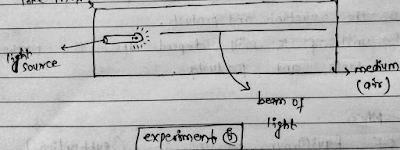 light
source
medium
(air)
beam of
light
experiment